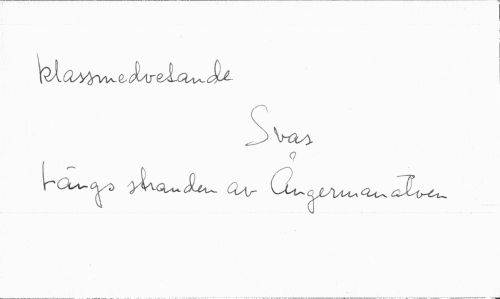 klassmedvetande
Svar
Längs stranden av Ångermanälven